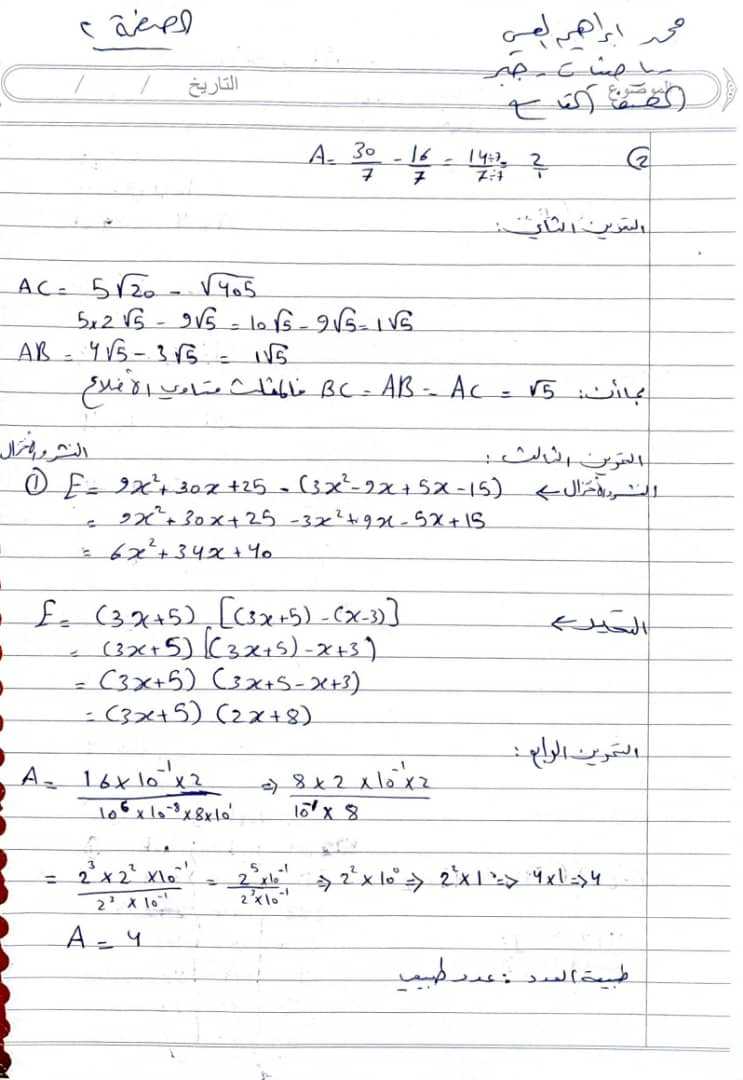 الصفحة ٢
محمد ابراهيم
رياضيات - جبر
الموضوع
الصف التاسع
التاريخ / /
② A = 30/7 - 16/7 = 14÷7/7÷7 = 2/1
التمرين الثاني:
AC = 5√20 - √405
5x2√5 - 9√5 = 10√5 - 9√5 = 1√5
AB = 4√5 - 3√5 = 1√5
بما أن: BC = AB = AC = √5 فالمثلث متساوي الأضلاع
التمرين الثالث:
النشر والاختزال
النشر والاختزال ←
① E = 9x² + 30x + 25 - (3x² - 9x + 5x - 15)
= 9x² + 30x + 25 - 3x² + 9x - 5x + 15
= 6x² + 34x + 40
التحليل ←
E = (3x+5) [(3x+5) - (x-3)]
= (3x+5) [(3x+5) - x+3)
= (3x+5) (3x+5-x+3)
= (3x+5) (2x+8)
التمرين الرابع:
A = 16 x 10⁻¹ x 2 / 10⁶ x 10⁻⁸ x 8 x 10¹ ⇒ 8 x 2 x 10⁻¹ x 2 / 10⁻¹ x 8
= 2³ x 2² x 10⁻¹ / 2³ x 10⁻¹ = 2⁵ x 10⁻¹ / 2³ x 10⁻¹ ⇒ 2² x 10⁰ ⇒ 2² x 1 ⇒ 4x1 ⇒ 4
A = 4
طبيعة العدد: عدد طبيعي